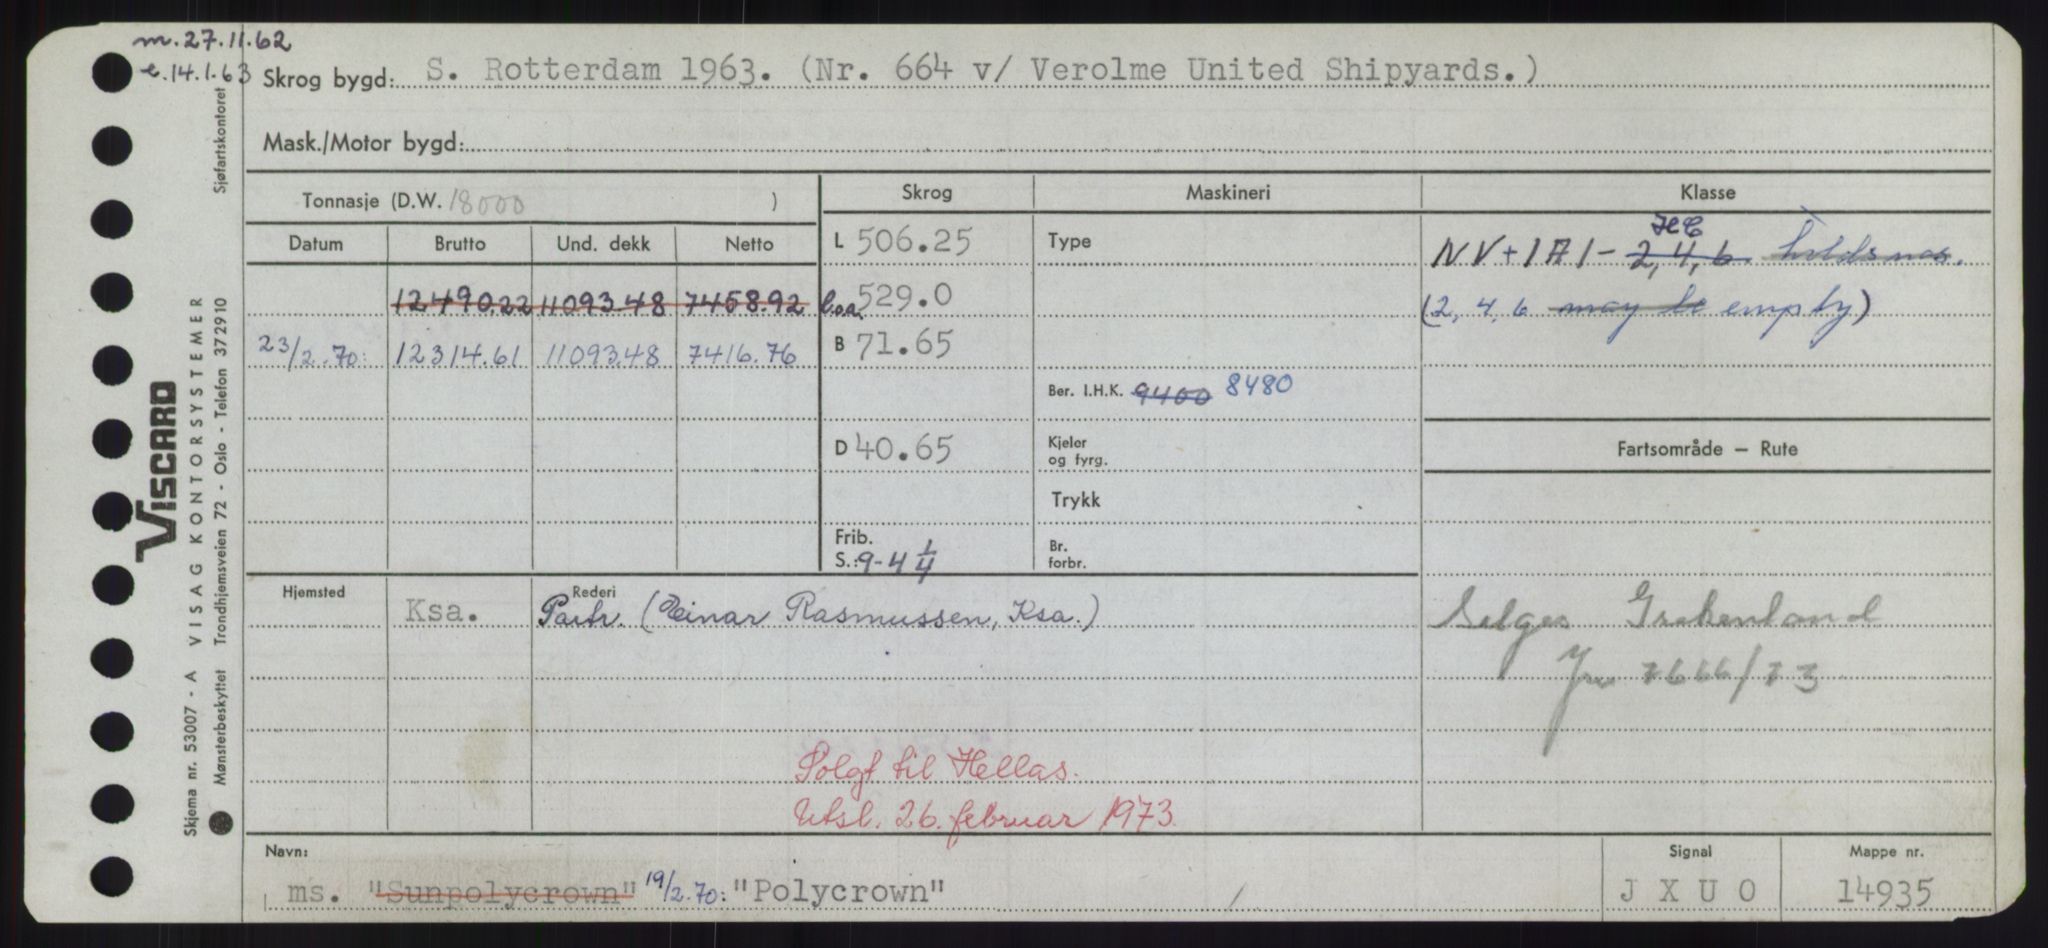 m. 27.11.62
e. 14.1.63
Skrog bygd: S. Rotterdam 1963. (Nr. 664 v/ Verolme United Shipyards.)
Mask./Motor bygd:
Tonnasje (D.W. 18000 )
Skrog
Maskineri
Klasse
Datum Brutto Und. dekk Netto
L 506.25
Type
HC
NV+1A1- 2,4,6. holdsmas.
12490.22 11093.48 7458.92
l.o.a. 529.0
(2, 4, 6 may be empty)
23/2.70: 12314.61 11093.48 7416.76
B 71.65
Ber. I.H.K. 9400 8480
D 40.65
Kjeler
og fyrg.
Fartsområde – Rute
Trykk
Frib.
S.: 9-4 1/4
Br.
forbr.
Hjemsted
Ksa.
Rederi
Partr. (Einar Rasmussen, Ksa.)
Selges Grekenland
Jnr 7666/73
Solgt til Hellas.
Utsl. 26. februar 1973.
Navn:
ms. "Sunpolycrown" 19/2.70: "Polycrown"
Signal
J X U O
Mappe nr.
14935
VISCARD
Skjema nr. 53007 - A VISAG KONTORSYSTEMER
Mønsterbeskyttet Trondhjemsveien 72 - Oslo - Telefon 372910 Sjøfartskontoret